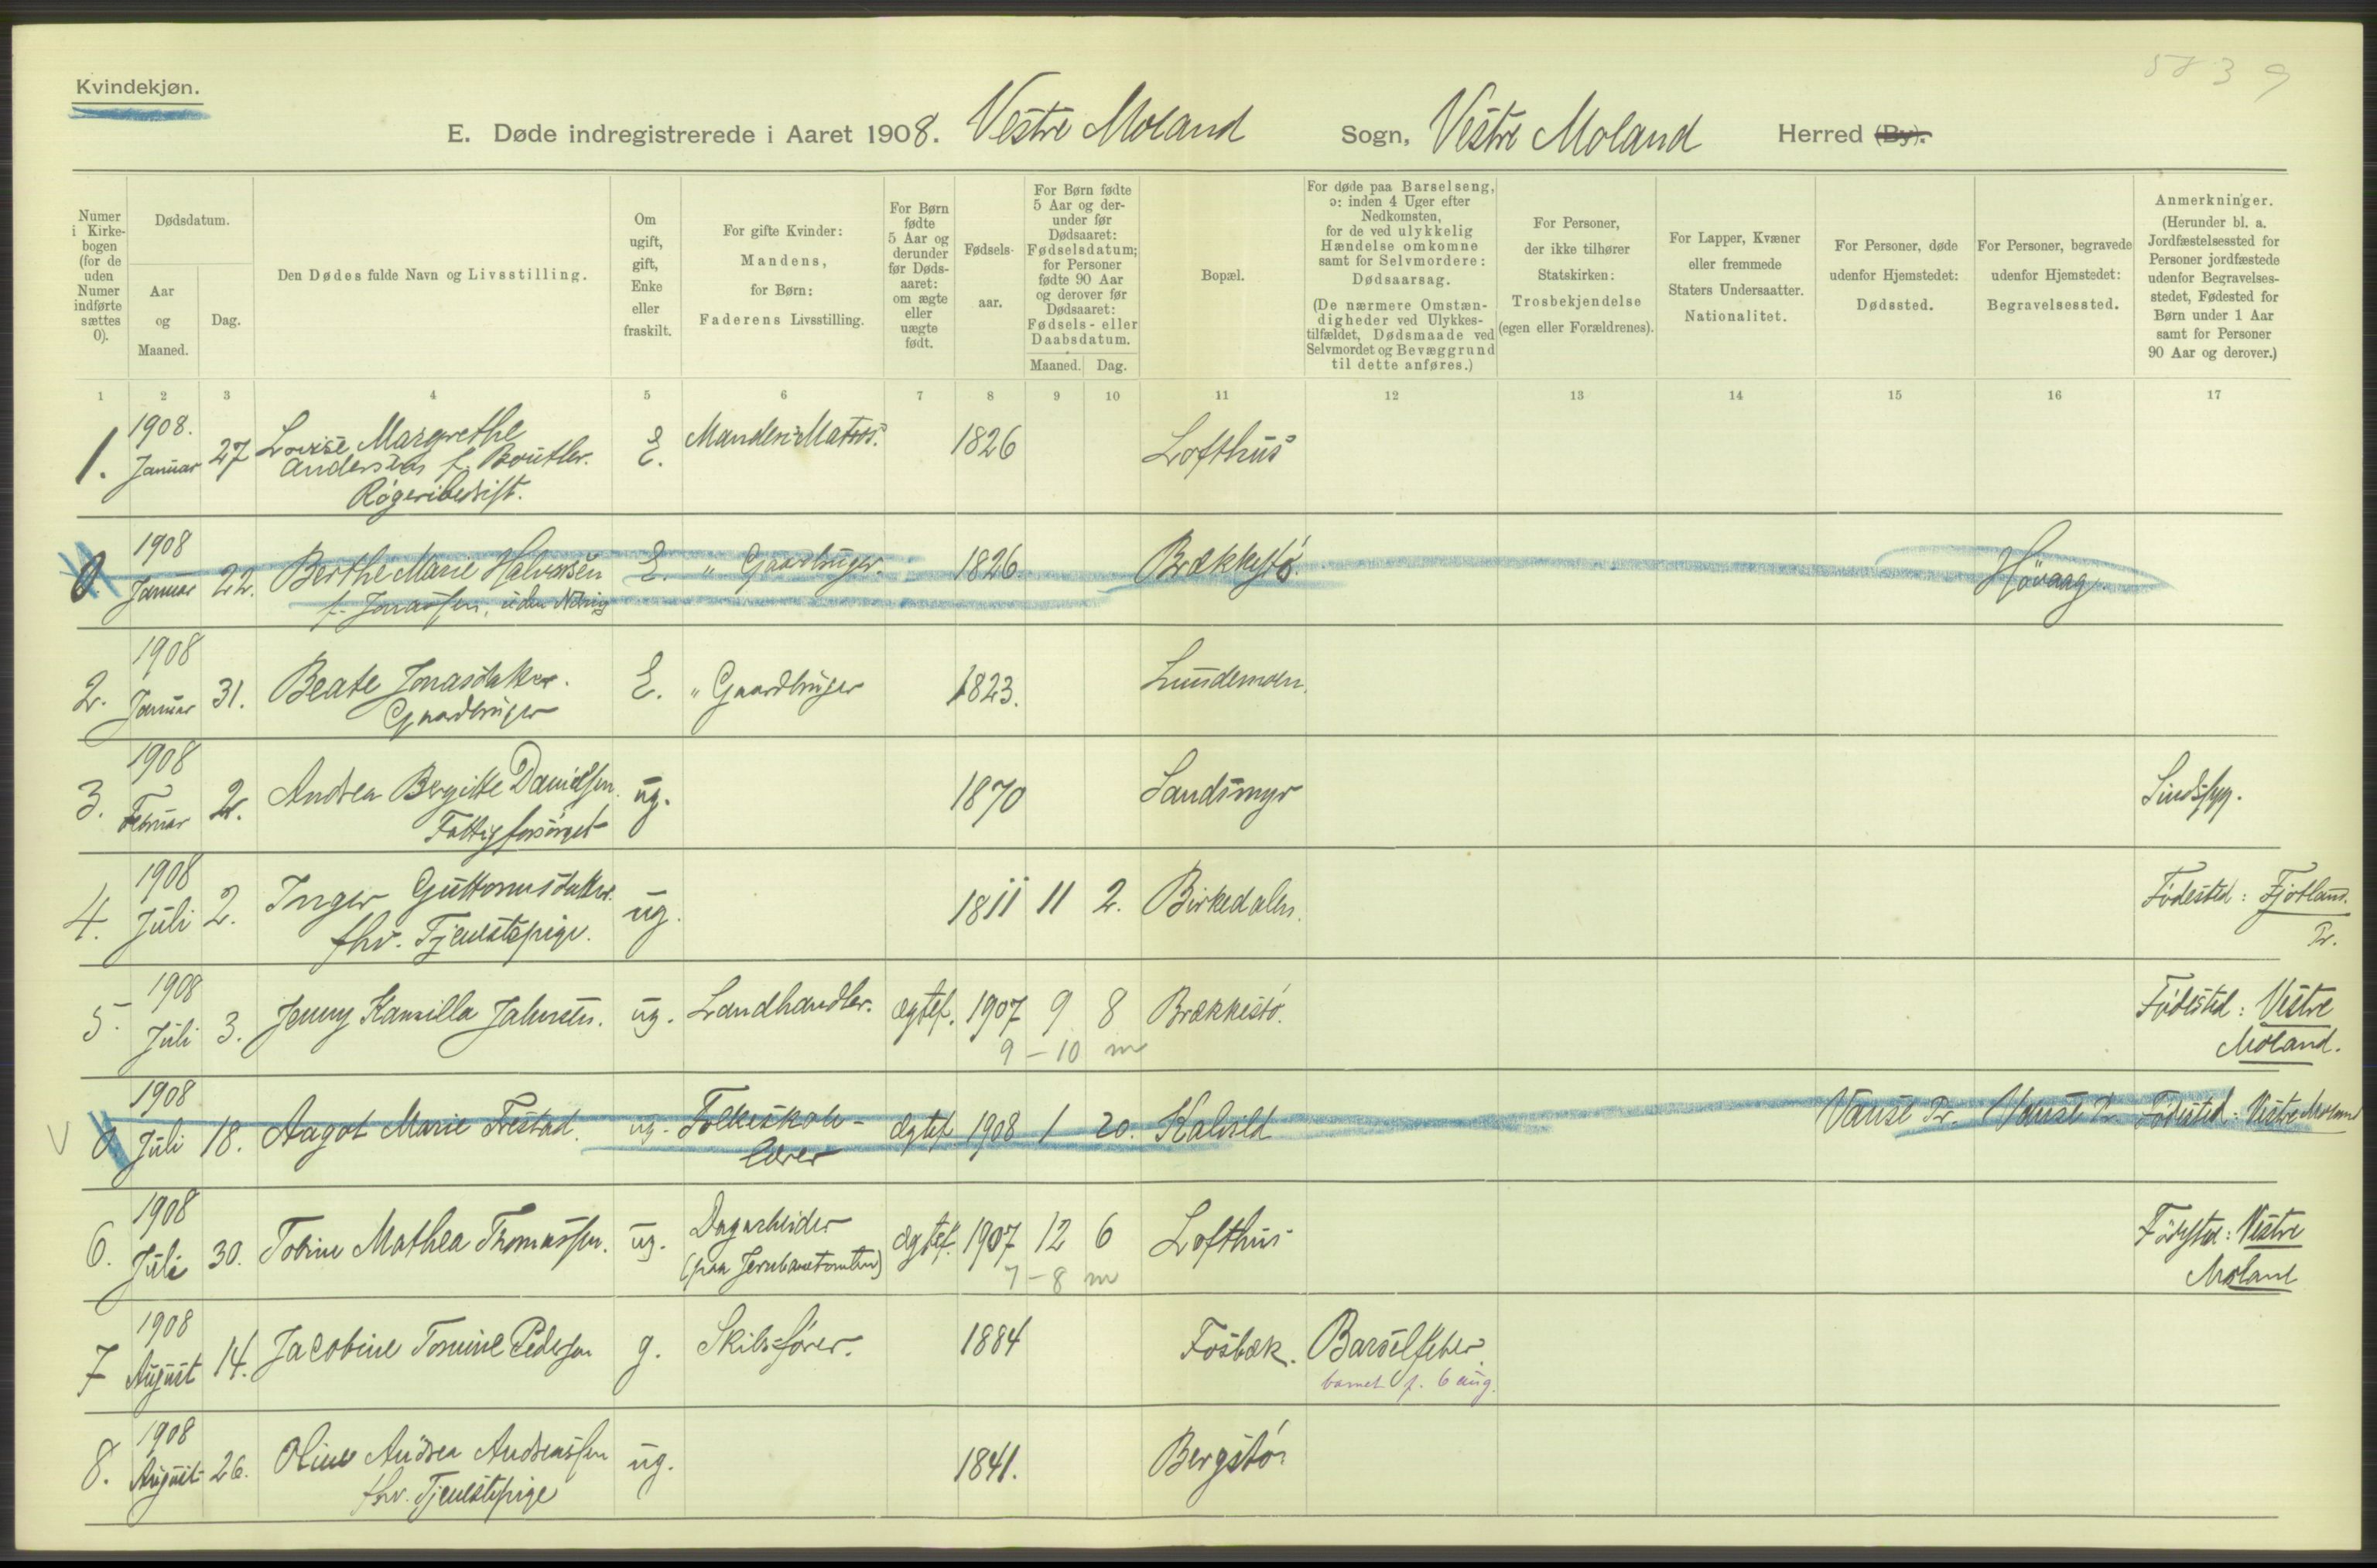 583 9
Kvindekjøn.
E. Døde indregistrerede i Aaret 1908. Vestre Moland Sogn, Vestre Moland Herred (By).
Numer i Kirkebogen (for de uden Numer indførte sættes 0).
Dødsdatum.
Aar og Maaned.
Dag.
Den Dødes fulde Navn og Livsstilling.
Om ugift, gift, Enke eller fraskilt.
For gifte Kvinder: Mandens, for Børn: Faderens Livsstilling.
For Børn fødte 5 Aar og derunder før Dødsaaret: om ægte eller uægte født.
Fødselsaar.
For Børn fødte 5 Aar og derunder før Dødsaaret: Fødselsdatum; for Personer fødte 90 Aar og derover før Dødsaaret: Fødsels- eller Daabsdatum.
Maaned. Dag.
Bopæl.
For døde paa Barselseng, ɔ: inden 4 Uger efter Nedkomsten, for de ved ulykkelig Hændelse omkomne samt for Selvmordere: Dødsaarsag.
(De nærmere Omstændigheder ved Ulykkestilfældet, Dødsmaade ved Selvmordet og Bevæggrund til dette anføres.)
For Personer, der ikke tilhører Statskirken: Trosbekjendelse (egen eller Forældrenes).
For Lapper, Kvæner eller fremmede Staters Undersaatter. Nationalitet.
For Personer, døde udenfor Hjemstedet: Dødssted.
For Personer, begravede udenfor Hjemstedet: Begravelsessted.
Anmerkninger.
(Herunder bl. a. Jordfæstelsessted for Personer jordfæstede udenfor Begravelsesstedet, Fødested for Børn under 1 Aar samt for Personer 90 Aar og derover.)
1 2 3 4 5 6 7 8 9 10 11 12 13 14 15 16 17
1. 1908. Januar 27 Lovise Margrethe E. Mandens: Matros. 1826 Lofthus
Andersen f. Boutler.
Røgeribedrift.
0. 1908 Januar 22. Berthe Marie Halvorsen E. " Gaardbruger. 1826. Brækkestø Høvaag
f. Jonassen, uden Næring
2. 1908 Januar 31. Beate Jonasdatter. E. " Gaardbruger 1823. Lundemoen.
Gaardbruger
3. 1908 Februar 2. Andrea Bergitte Danielsen. ug. 1870 Sandsmyr Sindssyg.
Fattigforsørget
4. 1908 Juli 2. Inger Guttormsdatter. ug. 1811 11 2. Birkedalen. Fødested: Fjotland.
fhv. Tjenestepige. Pr.
5. 1908 Juli 3. Jenny Kamilla Jahnsen. ug. Landhandler. ægtef. 1907 9 8 Brækkestø. Fødested: Vestre
9 - 10 m Moland.
V 0. 1908 Juli 18. Aagot Marie Frestad. ug. Folkeskole- ægtef 1908 1 20. Kalvild Vanse Pr. Vanse Pr. Fødested: Vestre Moland
lærer
6. 1908 Juli 30. Tobine Mathea Thomassen. ug. Dagarbeider ægtef. 1907 12 6 Lofthus Fødested: Vestre
(paa Jernbanetomten) 7 - 8 m Moland
7 1908 August 14. Jacobine Tomine Pedersen g. Skibsfører. 1884 Fosbæk. Barselfeber.
barnet f. 6 aug.
8. 1908 August 26. Oline Andrea Andreassen ug. 1841. Bergstø.
fhv. Tjenestepige